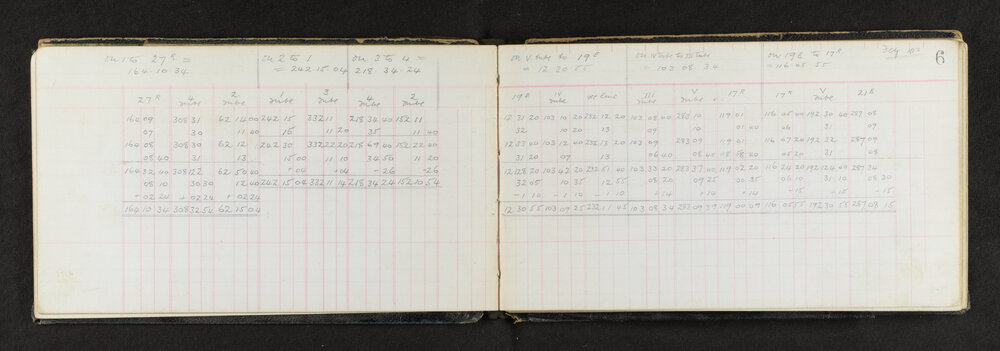 on 1 to 27R = on 2 to 1 on 3 to 4 =
164 10 34 = 242 15 04 218 34 24
27R 4 2 1 3 4 2
nube nube nube nube nube nube
164 09 308 31 62 14 00 242 15 332 11 218 34 40 152 11
07 30 11 40 15 11 20 35 11 40
164 08 308 30 62 12 242 30 332 22 20 218 69 40 152 22 40
08 40 31 13 15 00 11 10 34 50 11 20
164 32 40 308 122 62 50 40 +04 +04 -26 -26
08 10 30 30 12 40 242 15 04 332 11 14 218 34 24 152 10 54
+02 24 +02 24 +02 24
164 10 34 308 32 54 62 15 04
6
on V nube to 19E on IV nube to III nube on 19E to 17R
= 12 30 55 = 103 08 34 = 116 05 55
19E IV III V 17R 17R V 21B
nube nube nube nube
12 31 20 103 10 20 232 12 20 103 08 283 10 119 01 116 05 40 192 30 40 287 08
32 10 20 13 09 10 01 40 06 31 09
12 33 40 103 12 40 232 13 20 103 09 283 09 119 01 116 07 20 192 32 287 09
31 20 07 13 06 40 08 40 08 40 05 20 31 08
12 128 20 103 42 20 232 51 40 103 33 20 283 37 40 119 02 20 116 24 20 192 124 40 287 34
32 05 10 35 12 55 08 20 09 25 00 35 06 10 31 10 08 30
-1 10 -1 10 -1 10 +14 +14 +14 -15 -15 -15
12 30 55 103 09 25 232 11 45 103 08 34 283 09 39 119 00 49 116 05 55 192 30 55 287 08 15